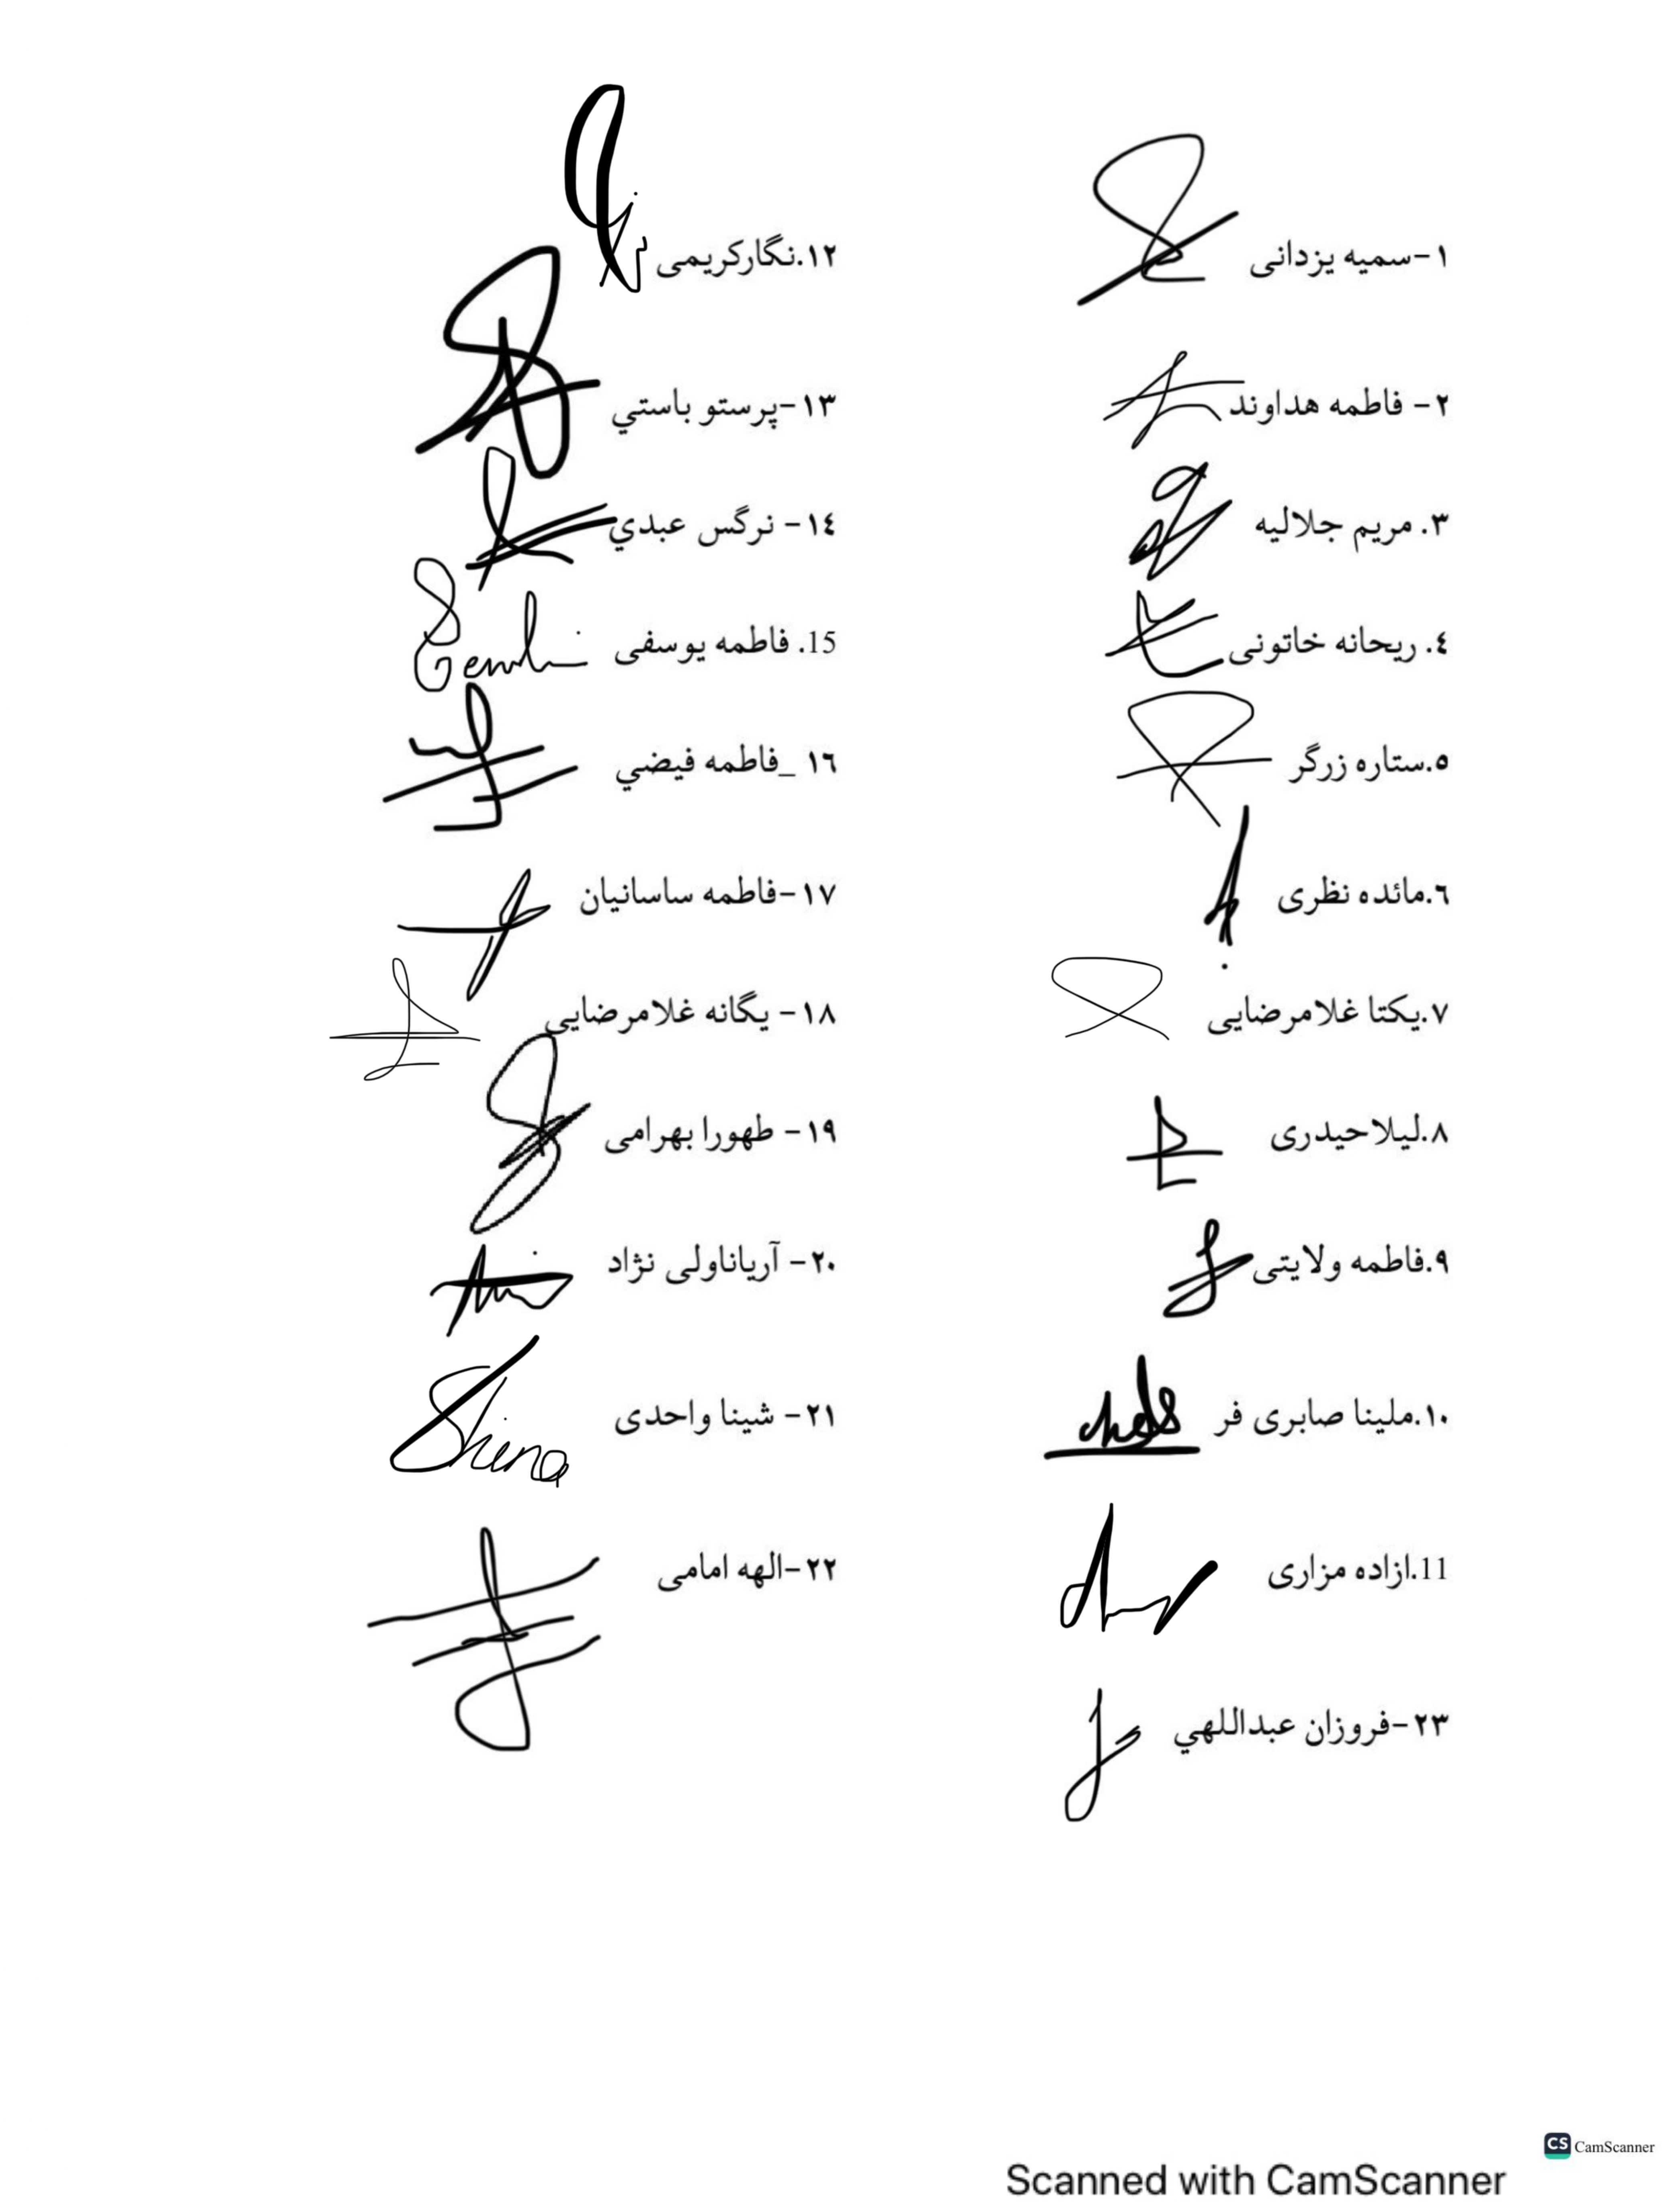 ١-سمیه یزدانی
٢- فاطمه هداوند
٣. مریم جلالیه
٤. ریحانه خاتونی
٥.ستاره زرگر
٦.مائده نظری
٧.یکتا غلامرضایی
٨.لیلاحیدری
٩.فاطمه ولایتی
١٠.ملینا صابری فر
11.ازاده مزاری
٢٣-فروزان عبداللهي
١٢.نگارکریمی
١٣-پرستو باستي
١٤- نرگس عبدي
15. فاطمه یوسفی
١٦ _فاطمه فيضي
١٧-فاطمه ساسانیان
١٨- یگانه غلامرضایی
١٩- طهورا بهرامی
٢٠- آریاناولی نژاد
٢١- شینا واحدی
Shina
٢٢-الهه امامی
CS CamScanner
Scanned with CamScanner